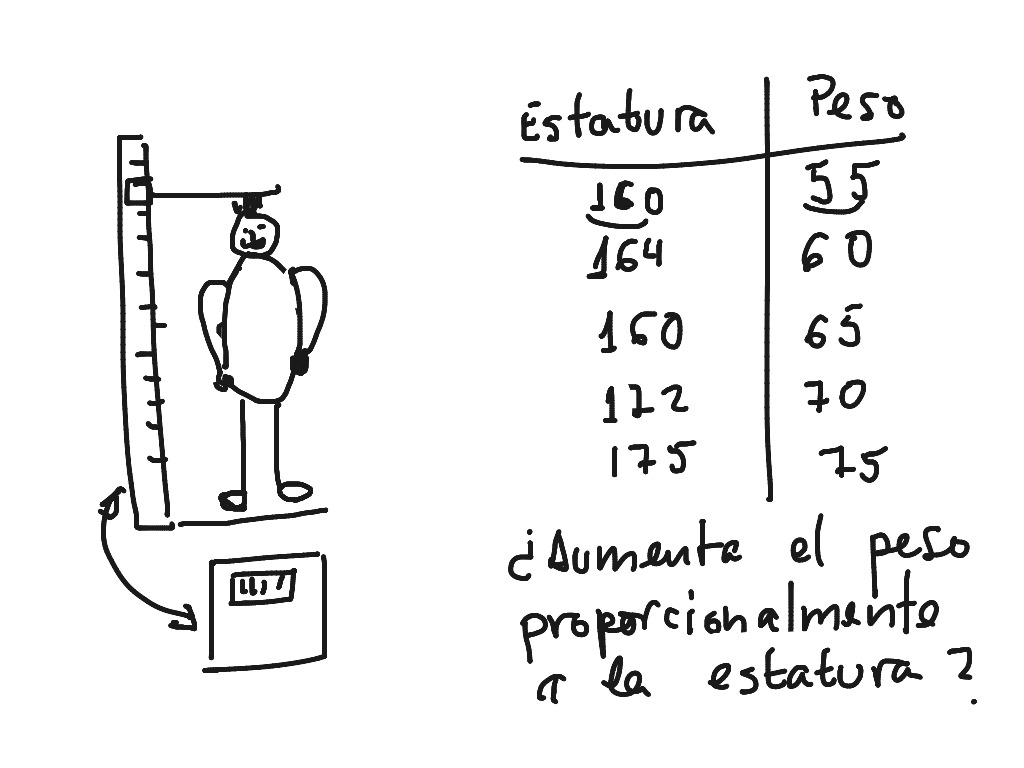 Estatura Peso
160 55
164 60
160 65
172 70
175 75
¿Aumenta el peso
proporcionalmente
a la estatura?